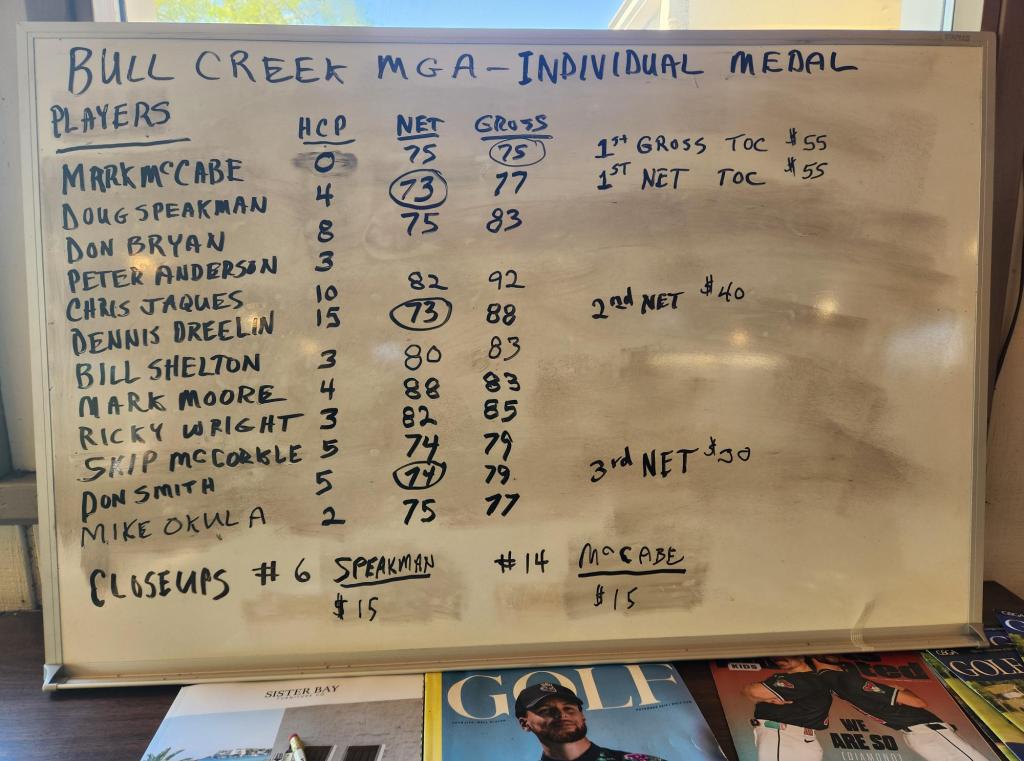 BULL CREEK MGA - INDIVIDUAL MEDAL
PLAYERS HCP NET GROSS
MARK McCABE 0 75 75 1st GROSS TOC $55
DOUG SPEAKMAN 4 73 77 1ST NET TOC $55
DON BRYAN 8 75 83
PETER ANDERSON 3
CHRIS JAQUES 10 82 92 2nd NET $40
DENNIS DREELIN 15 73 88
BILL SHELTON 3 80 83
MARK MOORE 4 88 83
RICKY WRIGHT 3 82 85
SKIP McCORKLE 5 74 79 3rd NET $30
DON SMITH 5 74 79
MIKE OKULA 2 75 77
CLOSEUPS #6 SPEAKMAN #14 McCABE
$15 $15
SISTER BAY
GOLF
KIDS
WE
ARE SO
(DIAMOND)
GOLF